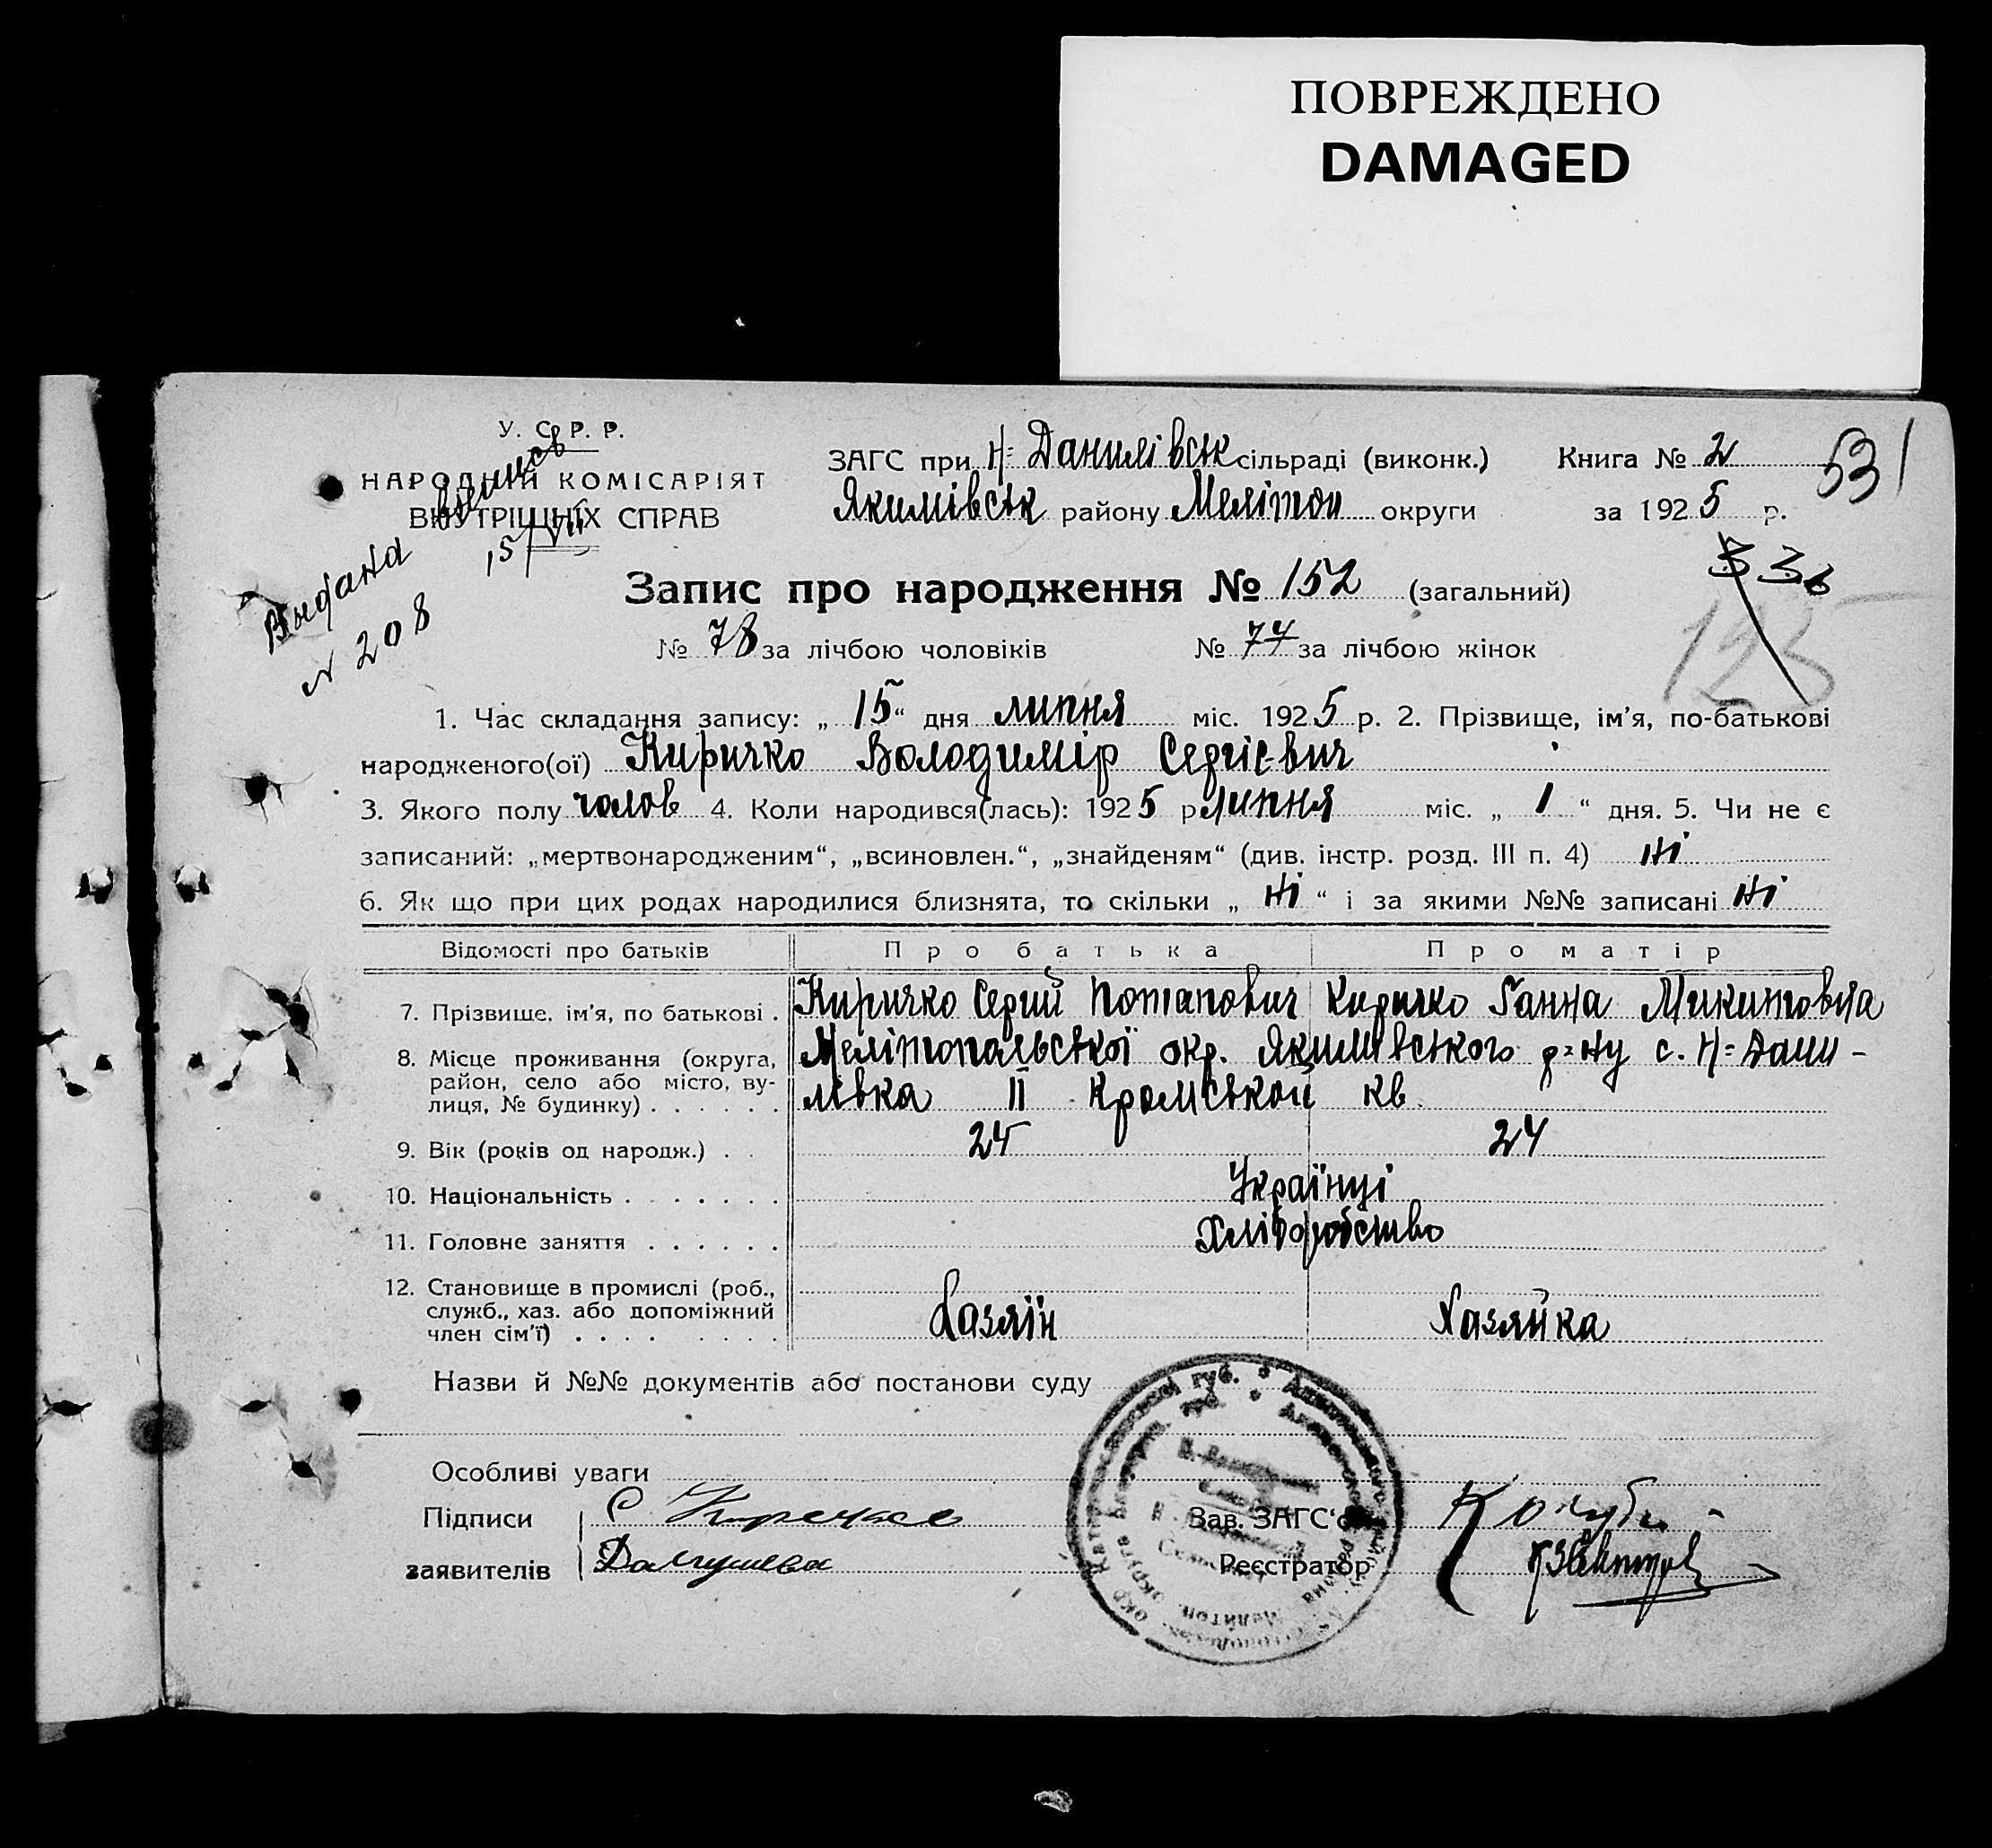 ПОВРЕЖДЕНО
DAMAGED
У. С. Р. Р.
НАРОДНІЙ КОМІСАРІЯТ
ВНУТРІШНІХ СПРАВ
Выдана выпись
15/VII
N 208
ЗАГС при Н=Данилівськ сільраді (виконк.) Книга № 2
531
Якимівськ району Мелітоп округи за 1925 р.
Запис про народження № 152 (загальний)
336
125
№ 78 за лічбою чоловіків № 74 за лічбою жінок
1. Час складання запису: „ 15 “ дня липня міс. 1925 р. 2. Прізвище, ім’я, по-батькові
народженого(ої) Киричко Володимір Сергієвич
3. Якого полу чолов 4. Коли народився(лась): 1925 р липня міс. „ 1 “ дня. 5. Чи не є
записаний: „мертвонародженим“, „всиновлен.“, „знайденям“ (див. інстр. розд. III п. 4) ні
6. Як що при цих родах народилися близнята, то скільки „ ні “ і за якими №№ записані ні
Відомості про батьків Про батька Про матір
7. Прізвище, ім’я, по батькові . Киричко Сергій Потапович Киричко Ганна Микитовна
8. Місце проживання (округа, Мелітопальської окр. Якимівського р=ну с. Н=Дани-
район, село або місто, ву-
лиця, № будинку) . . . . . . лівка II Кромської кв
9. Вік (років од народж.) . . 25 24
10. Національність . . . . . . . Українці
11. Головне заняття . . . . . . Хліборобство
12. Становище в промислі (роб.,
служб., хаз. або допоміжний
член сім’ї) . . . . . . . . Хазяїн Хазяйка
Назви й №№ документів або постанови суду
Особливі уваги
Підписи С Киречко Зав. ЗАГС‘о
заявителів Реєстратор